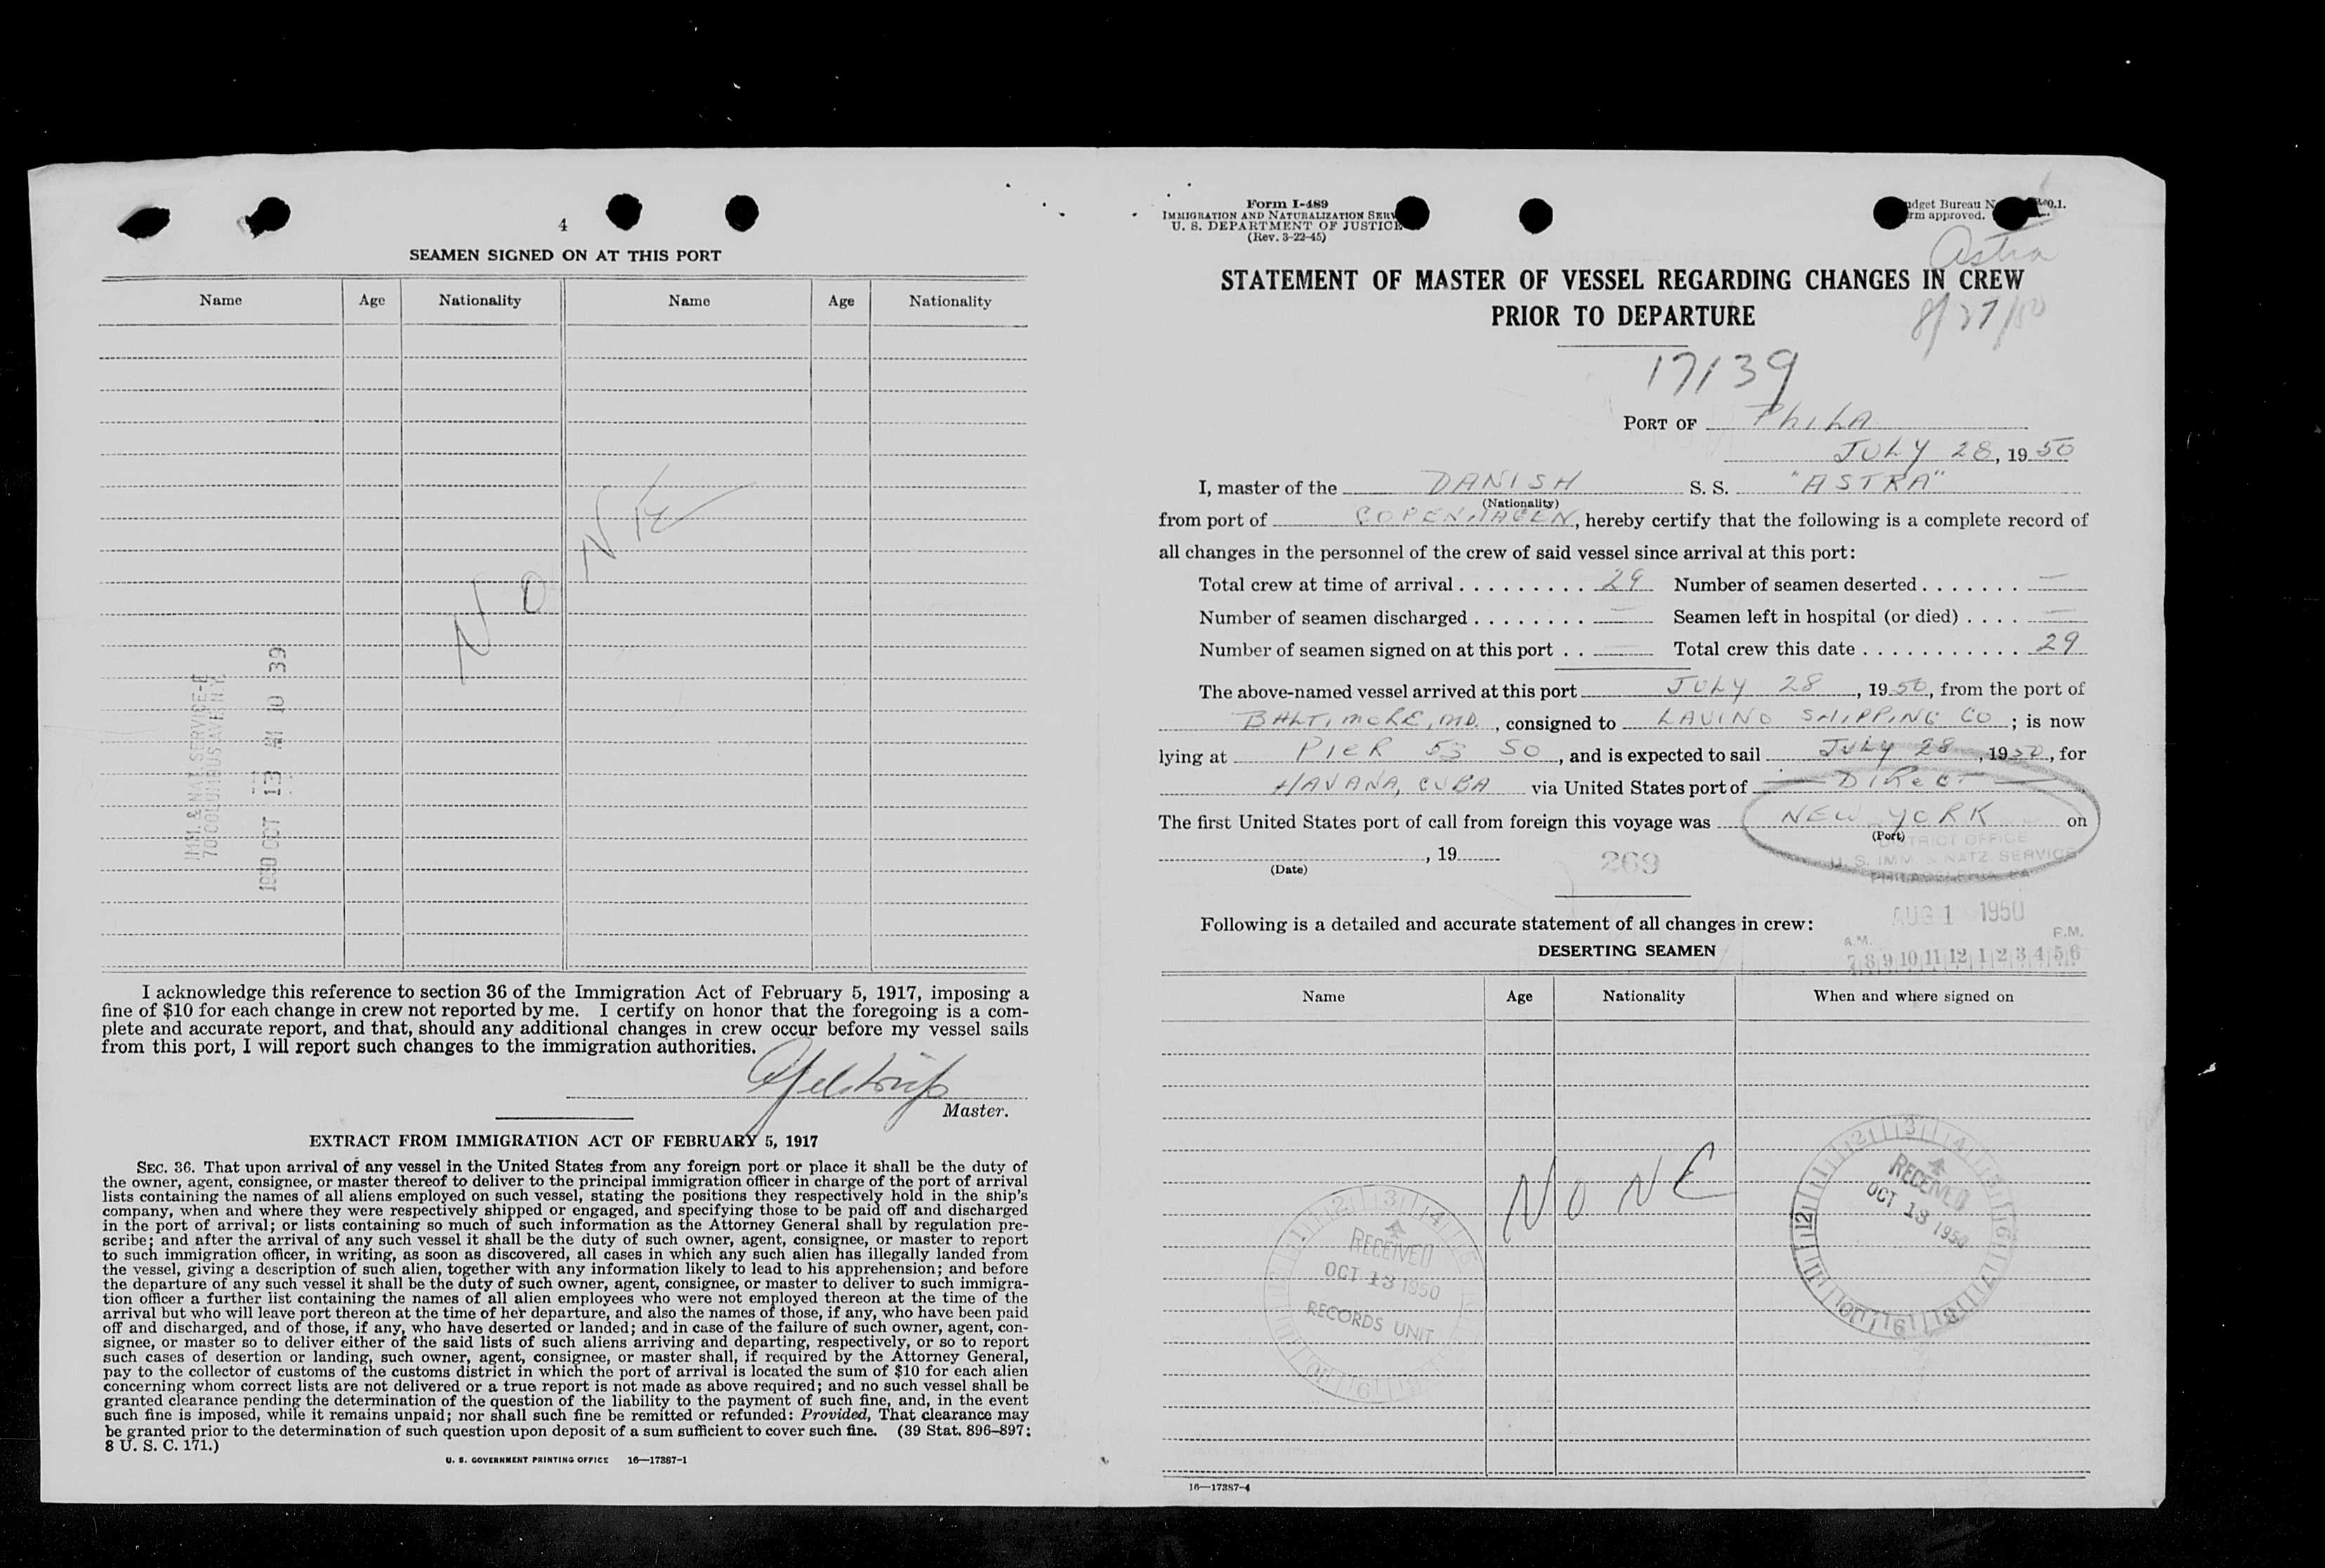 4
SEAMEN SIGNED ON AT THIS PORT
Name Age Nationality Name Age Nationality
NONE
IMM. & NAT. SERVICE
70 COLUMBUS AVE. N.Y.
1950 OCT 13 AM 10 39
I acknowledge this reference to section 36 of the Immigration Act of February 5, 1917, imposing a
fine of $10 for each change in crew not reported by me. I certify on honor that the foregoing is a com-
plete and accurate report, and that, should any additional changes in crew occur before my vessel sails
from this port, I will report such changes to the immigration authorities.
Master.
EXTRACT FROM IMMIGRATION ACT OF FEBRUARY 5, 1917
SEC. 36. That upon arrival of any vessel in the United States from any foreign port or place it shall be the duty of
the owner, agent, consignee, or master thereof to deliver to the principal immigration officer in charge of the port of arrival
lists containing the names of all aliens employed on such vessel, stating the positions they respectively hold in the ship's
company, when and where they were respectively shipped or engaged, and specifying those to be paid off and discharged
in the port of arrival; or lists containing so much of such information as the Attorney General shall by regulation pre-
scribe; and after the arrival of any such vessel it shall be the duty of such owner, agent, consignee, or master to report
to such immigration officer, in writing, as soon as discovered, all cases in which any such alien has illegally landed from
the vessel, giving a description of such alien, together with any information likely to lead to his apprehension; and before
the departure of any such vessel it shall be the duty of such owner, agent, consignee, or master to deliver to such immigra-
tion officer a further list containing the names of all alien employees who were not employed thereon at the time of the
arrival but who will leave port thereon at the time of her departure, and also the names of those, if any, who have been paid
off and discharged, and of those, if any, who have deserted or landed; and in case of the failure of such owner, agent, con-
signee, or master so to deliver either of the said lists of such aliens arriving and departing, respectively, or so to report
such cases of desertion or landing, such owner, agent, consignee, or master shall, if required by the Attorney General,
pay to the collector of customs of the customs district in which the port of arrival is located the sum of $10 for each alien
concerning whom correct lists are not delivered or a true report is not made as above required; and no such vessel shall be
granted clearance pending the determination of the question of the liability to the payment of such fine, and, in the event
such fine is imposed, while it remains unpaid; nor shall such fine be remitted or refunded: Provided, That clearance may
be granted prior to the determination of such question upon deposit of a sum sufficient to cover such fine. (39 Stat. 896–897;
8 U. S. C. 171.)
U. S. GOVERNMENT PRINTING OFFICE 16—17387-1
Form I-489
IMMIGRATION AND NATURALIZATION SERV
U. S. DEPARTMENT OF JUSTICE
(Rev. 3-22-45)
dget Bureau N 0.1.
rm approved.
Astra
STATEMENT OF MASTER OF VESSEL REGARDING CHANGES IN CREW
PRIOR TO DEPARTURE
8/27/50
17139
PORT OF PhilA
JULY 28, 1950
I, master of the DANISH S. S. "ASTRA"
(Nationality)
from port of COPENHAGEN, hereby certify that the following is a complete record of
all changes in the personnel of the crew of said vessel since arrival at this port:
Total crew at time of arrival 29 Number of seamen deserted —
Number of seamen discharged — Seamen left in hospital (or died) —
Number of seamen signed on at this port — Total crew this date 29
The above-named vessel arrived at this port JULY 28, 1950, from the port of
BALTIMORE, MD., consigned to LAVINO SHIPPING CO; is now
lying at PIER 53 SO, and is expected to sail JULY 28, 1950, for
HAVANA, CUBA via United States port of — DIRECT —
The first United States port of call from foreign this voyage was NEW YORK on
(Port)
, 19
(Date)
269
DISTRICT OFFICE
U. S. IMM. & NATZ. SERVICE
PHILADELPHIA, PA
AUG 1 1950
A.M. P.M.
7 8 9 10 11 12 1 2 3 4 5 6
Following is a detailed and accurate statement of all changes in crew:
DESERTING SEAMEN
Name Age Nationality When and where signed on
NONE
RECEIVED
OCT 13 1950
RECORDS UNIT
RECEIVED
OCT 13 1950
16—17387-4